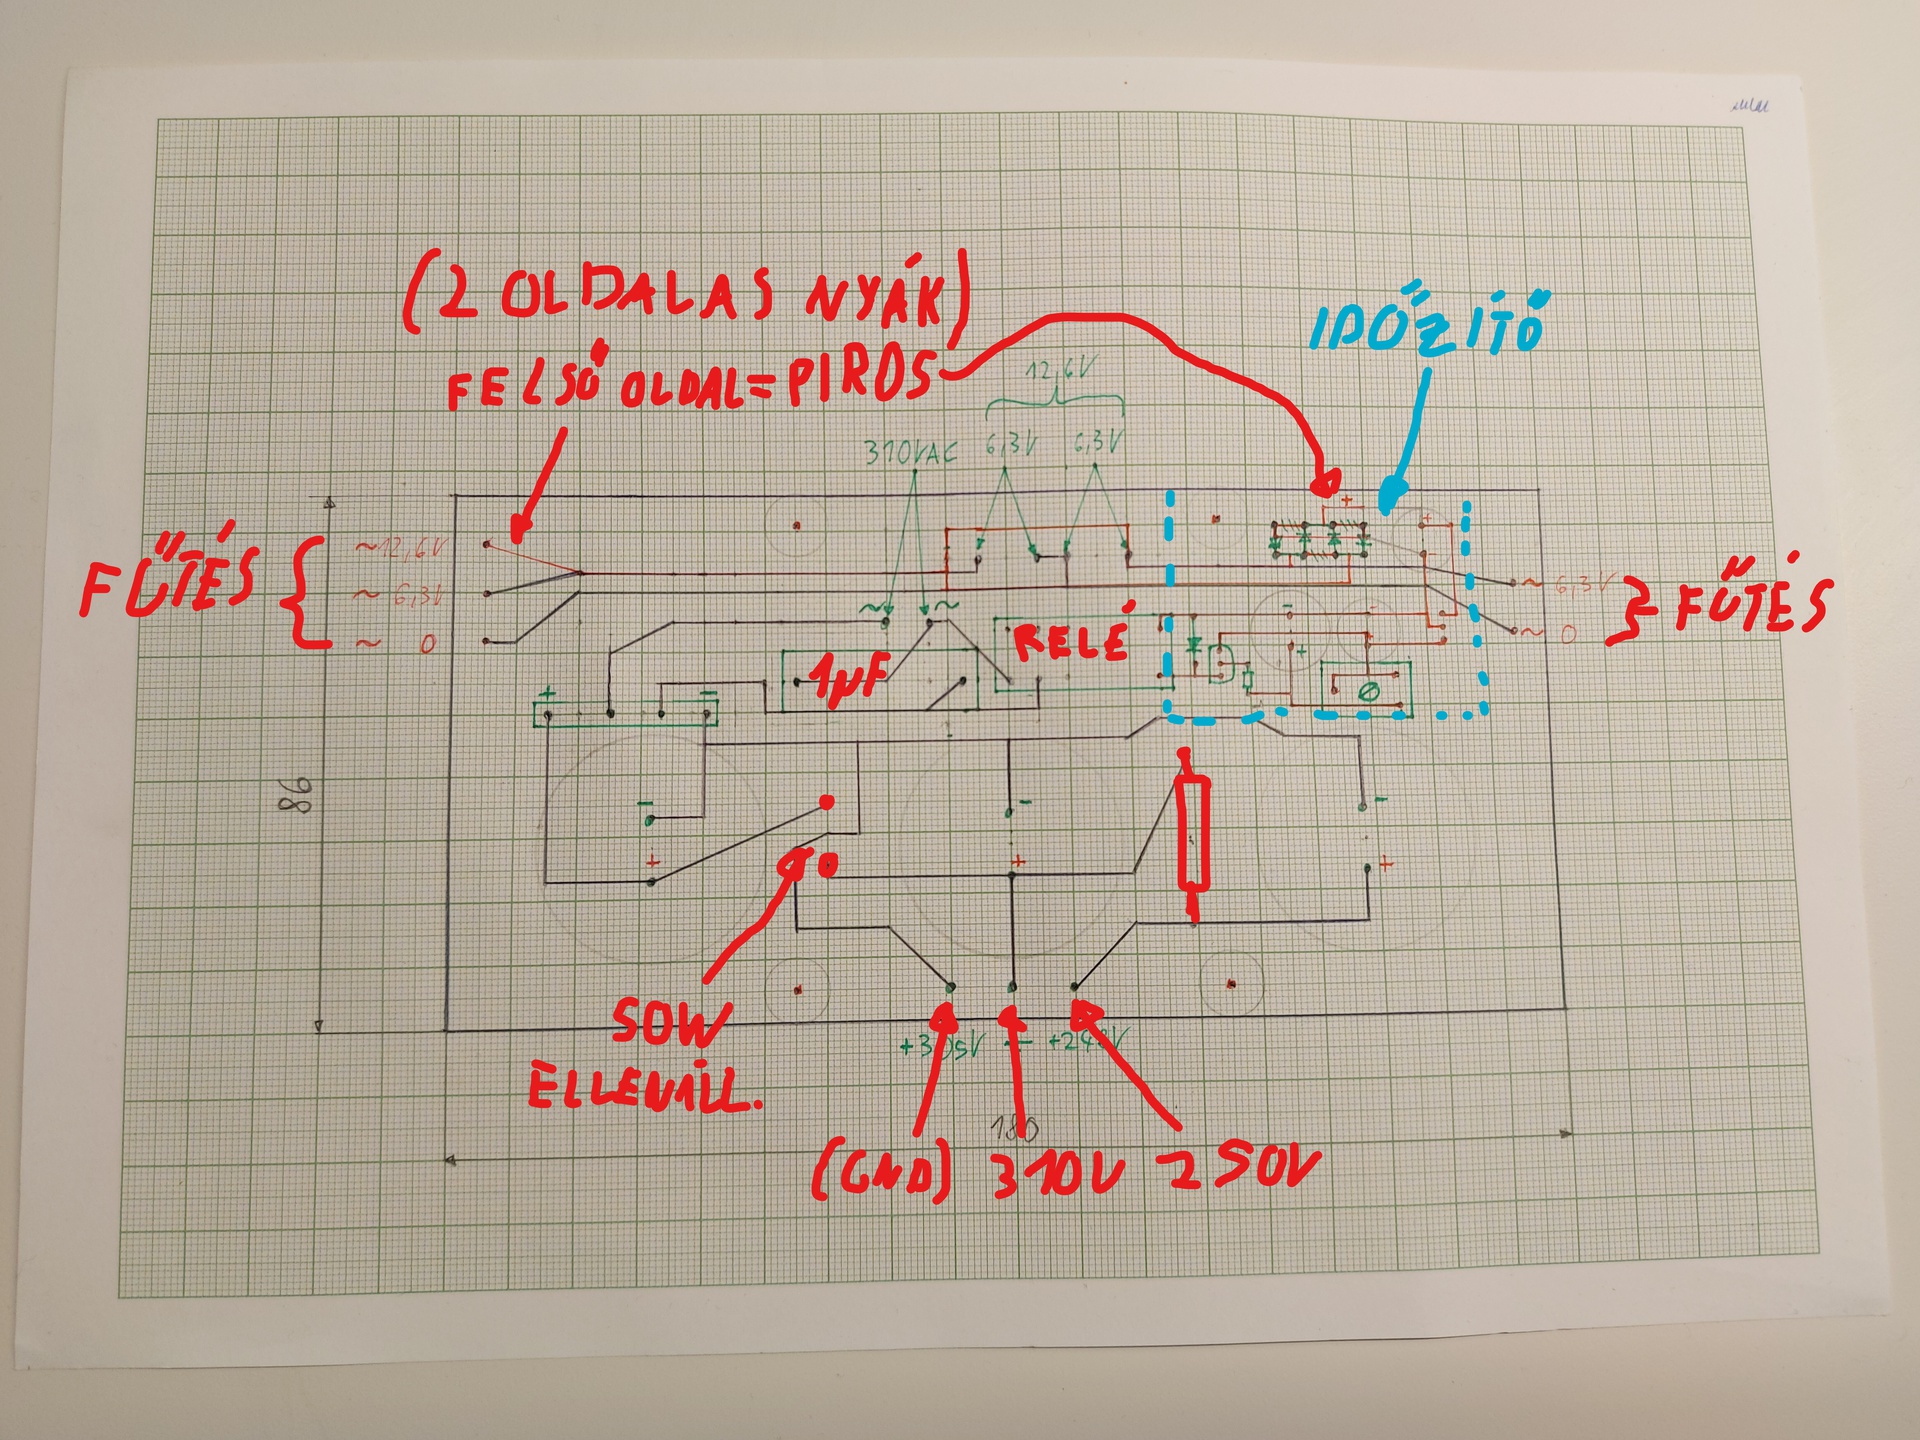 (2 OLDALAS NYÁK)
FELSŐ OLDAL=PIROS
IDŐZÍTŐ
12,6V
310VAC 6,3V 6,3V
+
+
FŰTÉS
~12,6V
~ 6,3V
~ 0
~ 6,3V
~ 0
FŰTÉS
~ ~
RELÉ
1µF
+ -
- +
86
- - -
+ + +
50W
ELLENÁLL.
180
(GND) 310V 250V